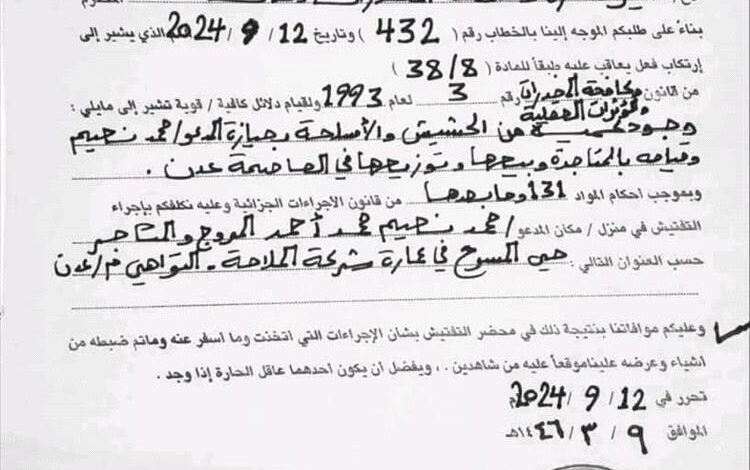 بناءً على طلبكم الموجه إلينا بالخطاب رقم ( 432 ) وتاريخ 12 / 9 / 2024م الذي يشير إلى
إرتكاب فعل يعاقب عليه طبقاً للمادة ( 38/8 )
من قانون مكافحة المخدرات رقم 3 لعام 1993 ولقيام دلائل كافية / قوية تشير إلى مايلي :
والمؤثرات العقلية
وجود كمية من الحشيش والأسلحة بحيازة المدعو/ محمد نعيم
وقيامه بالمتاجرة وبيعها وتوزيعها في العاصمة عدن .
وبموجب احكام المواد 131 وما بعدها من قانون الاجراءات الجزائية وعليه نكلفكم بإجراء
التفتيش في منزل / مكان المدعو / محمد نعيم محمد أحمد
حسب العنوان التالي : حي المسبح في عمارة شركة الملاحة - التواهي م/عدن
وعليكم موافاتنا بنتيجة ذلك في محضر التفتيش بشان الإجراءات التي اتخذت وما اسفر عنه وماتم ضبطه من
اشياء وعرضه علينا موقعاً عليه من شاهدين . ، ويفضل ان يكون احدهما عاقل الحارة إذا وجد .
تحرر في 12 / 9 / 2024م
الموافق ٩ / ٣ / ١٤٤٦هـ